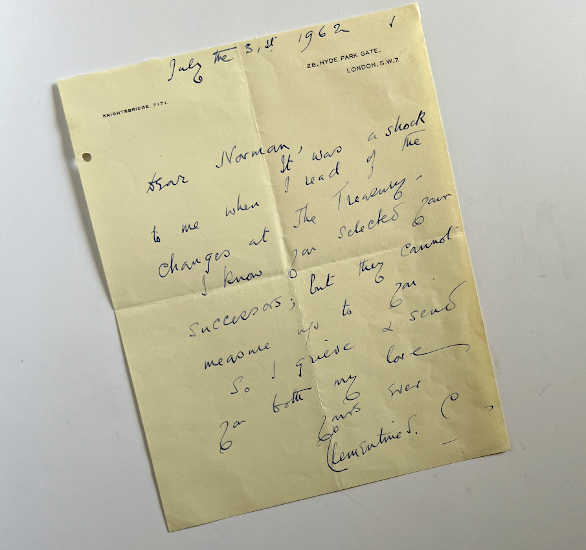 July the 31st 1962
28, HYDE PARK GATE,
LONDON, S.W.7.
KNIGHTSBRIDGE 7171.
Dear Norman,
It was a shock
to me when I read of the
changes at The Treasury.
I know you selected your
successors; but they cannot
measure up to you.
So I grieve & send
you both my love
Yours ever
Clementine S. C